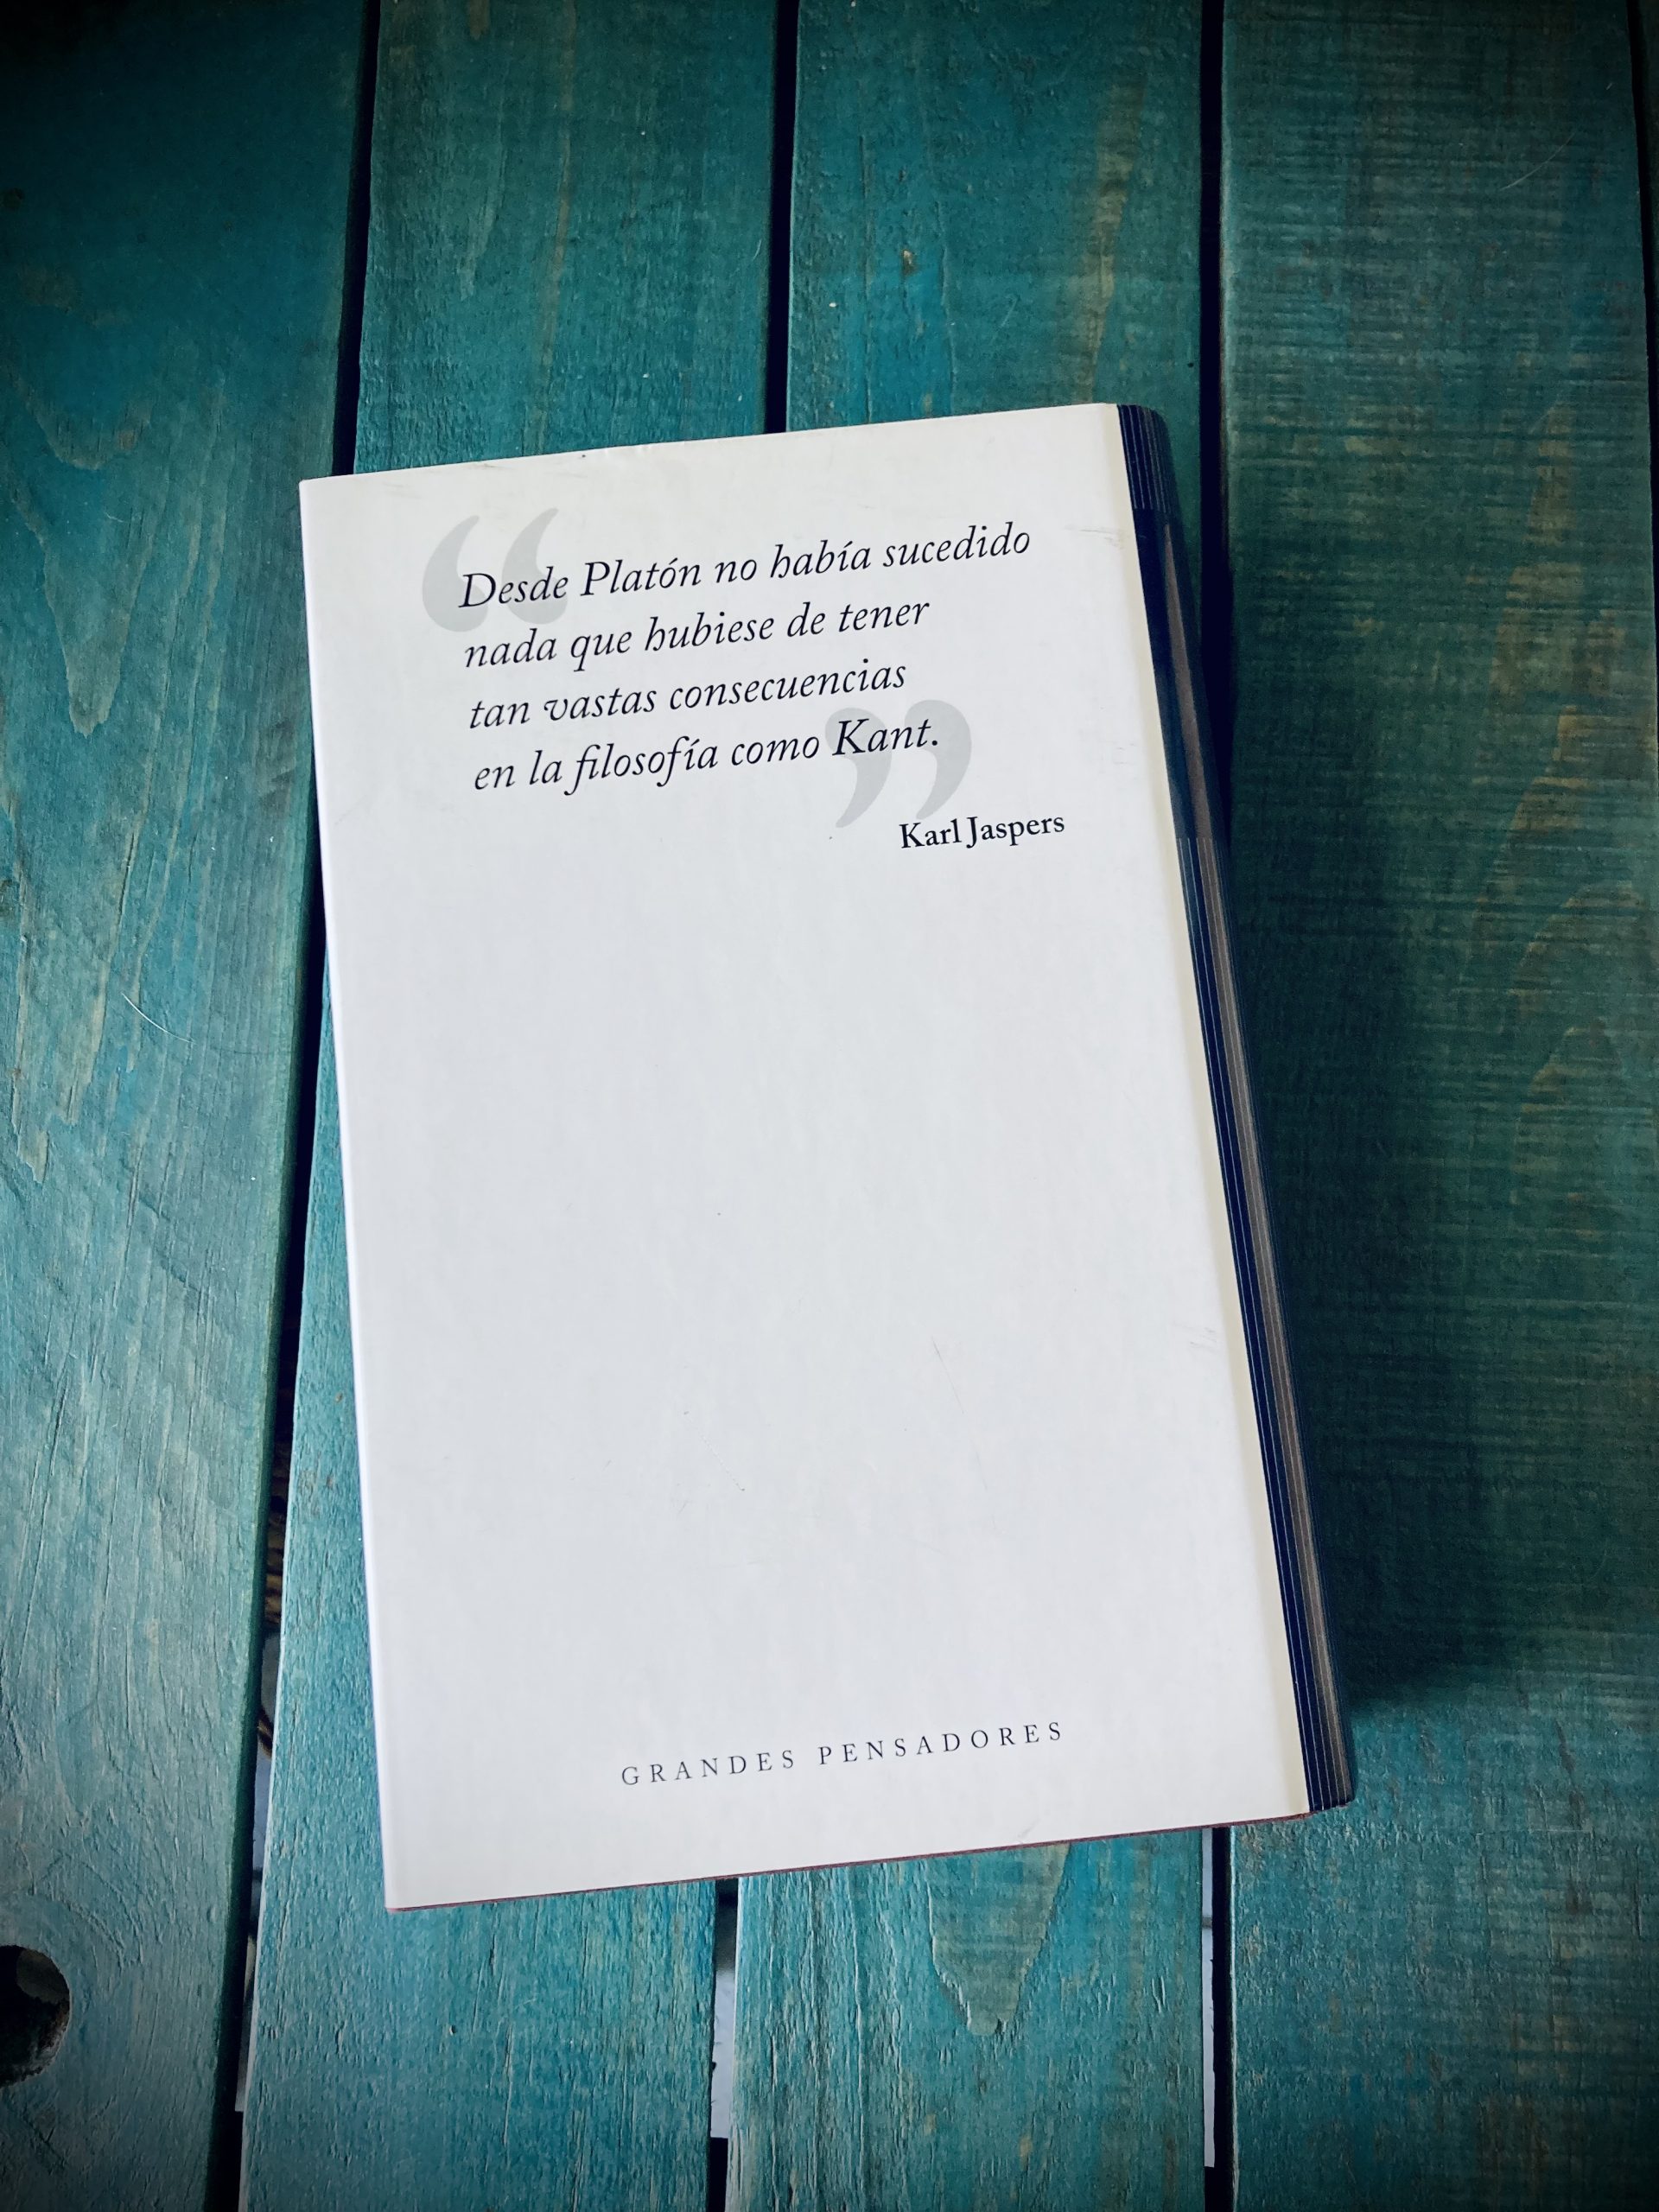 “Desde Platón no había sucedido
nada que hubiese de tener
tan vastas consecuencias
en la filosofía como Kant.”
Karl Jaspers
GRANDES PENSADORES